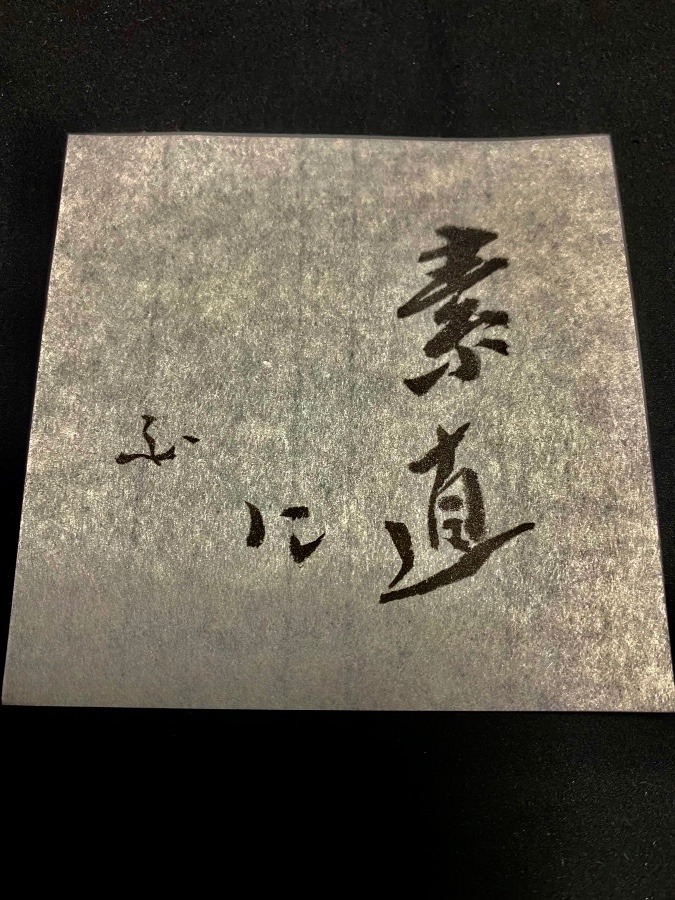 素直
に
ふ